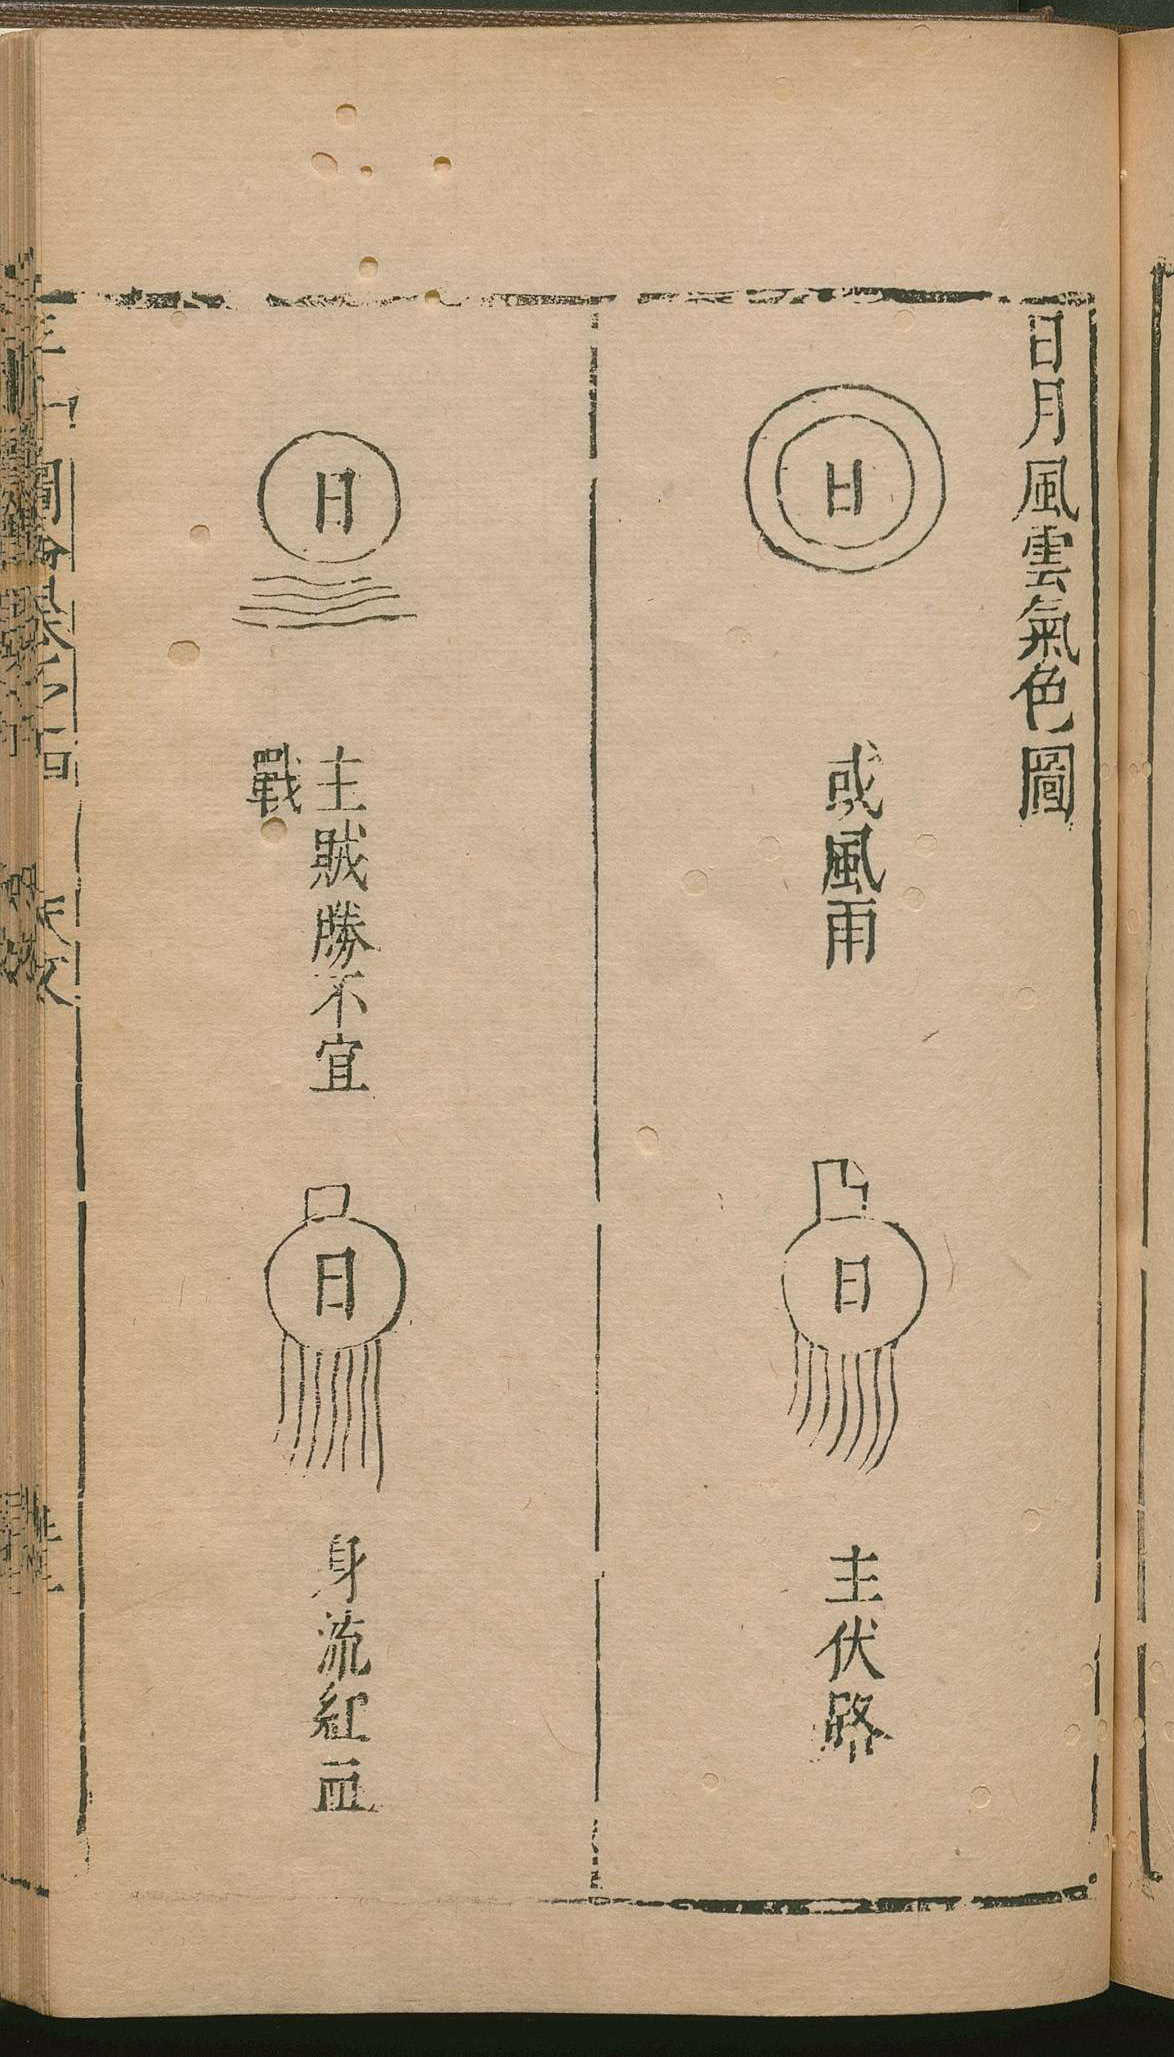 日月風雲氣色圖
日
或風雨
日
主伏路
日
主賊勝不宜
戰
日
身流紅血
圖會
天文